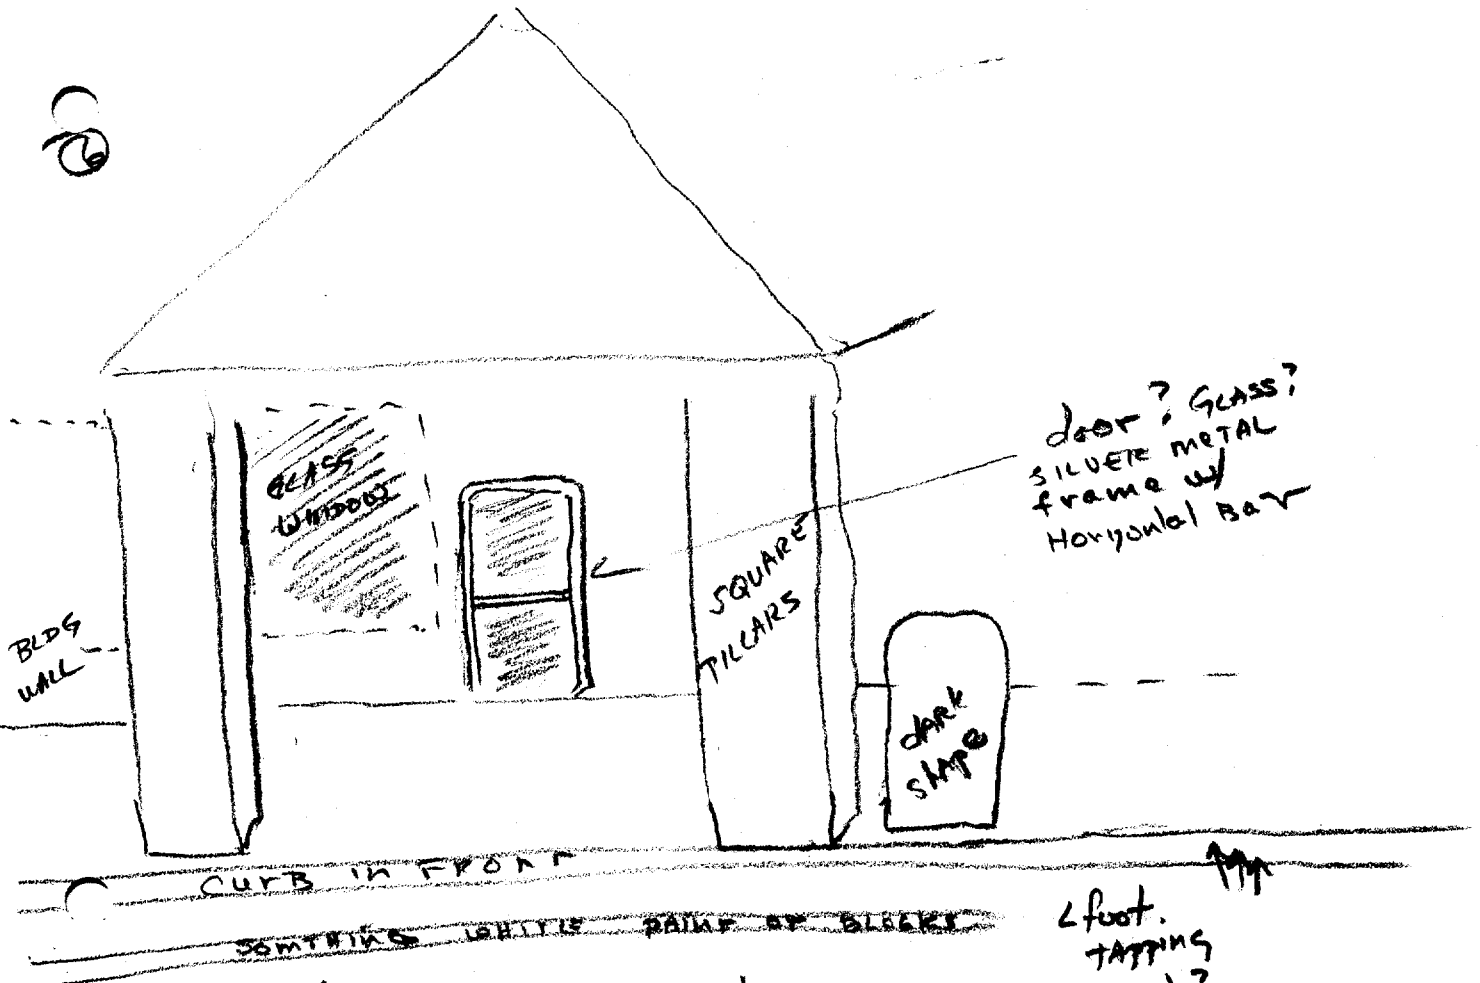 GLASS
WINDOW
door? GLASS?
SILVER METAL
frame w/
Horizontal Bar
SQUARE
PILLARS
BLDG
WALL
dARK
shApe
CURB in FRONT
SOMTHING WHITE PAINT OR BLOCKS
foot.
tApping